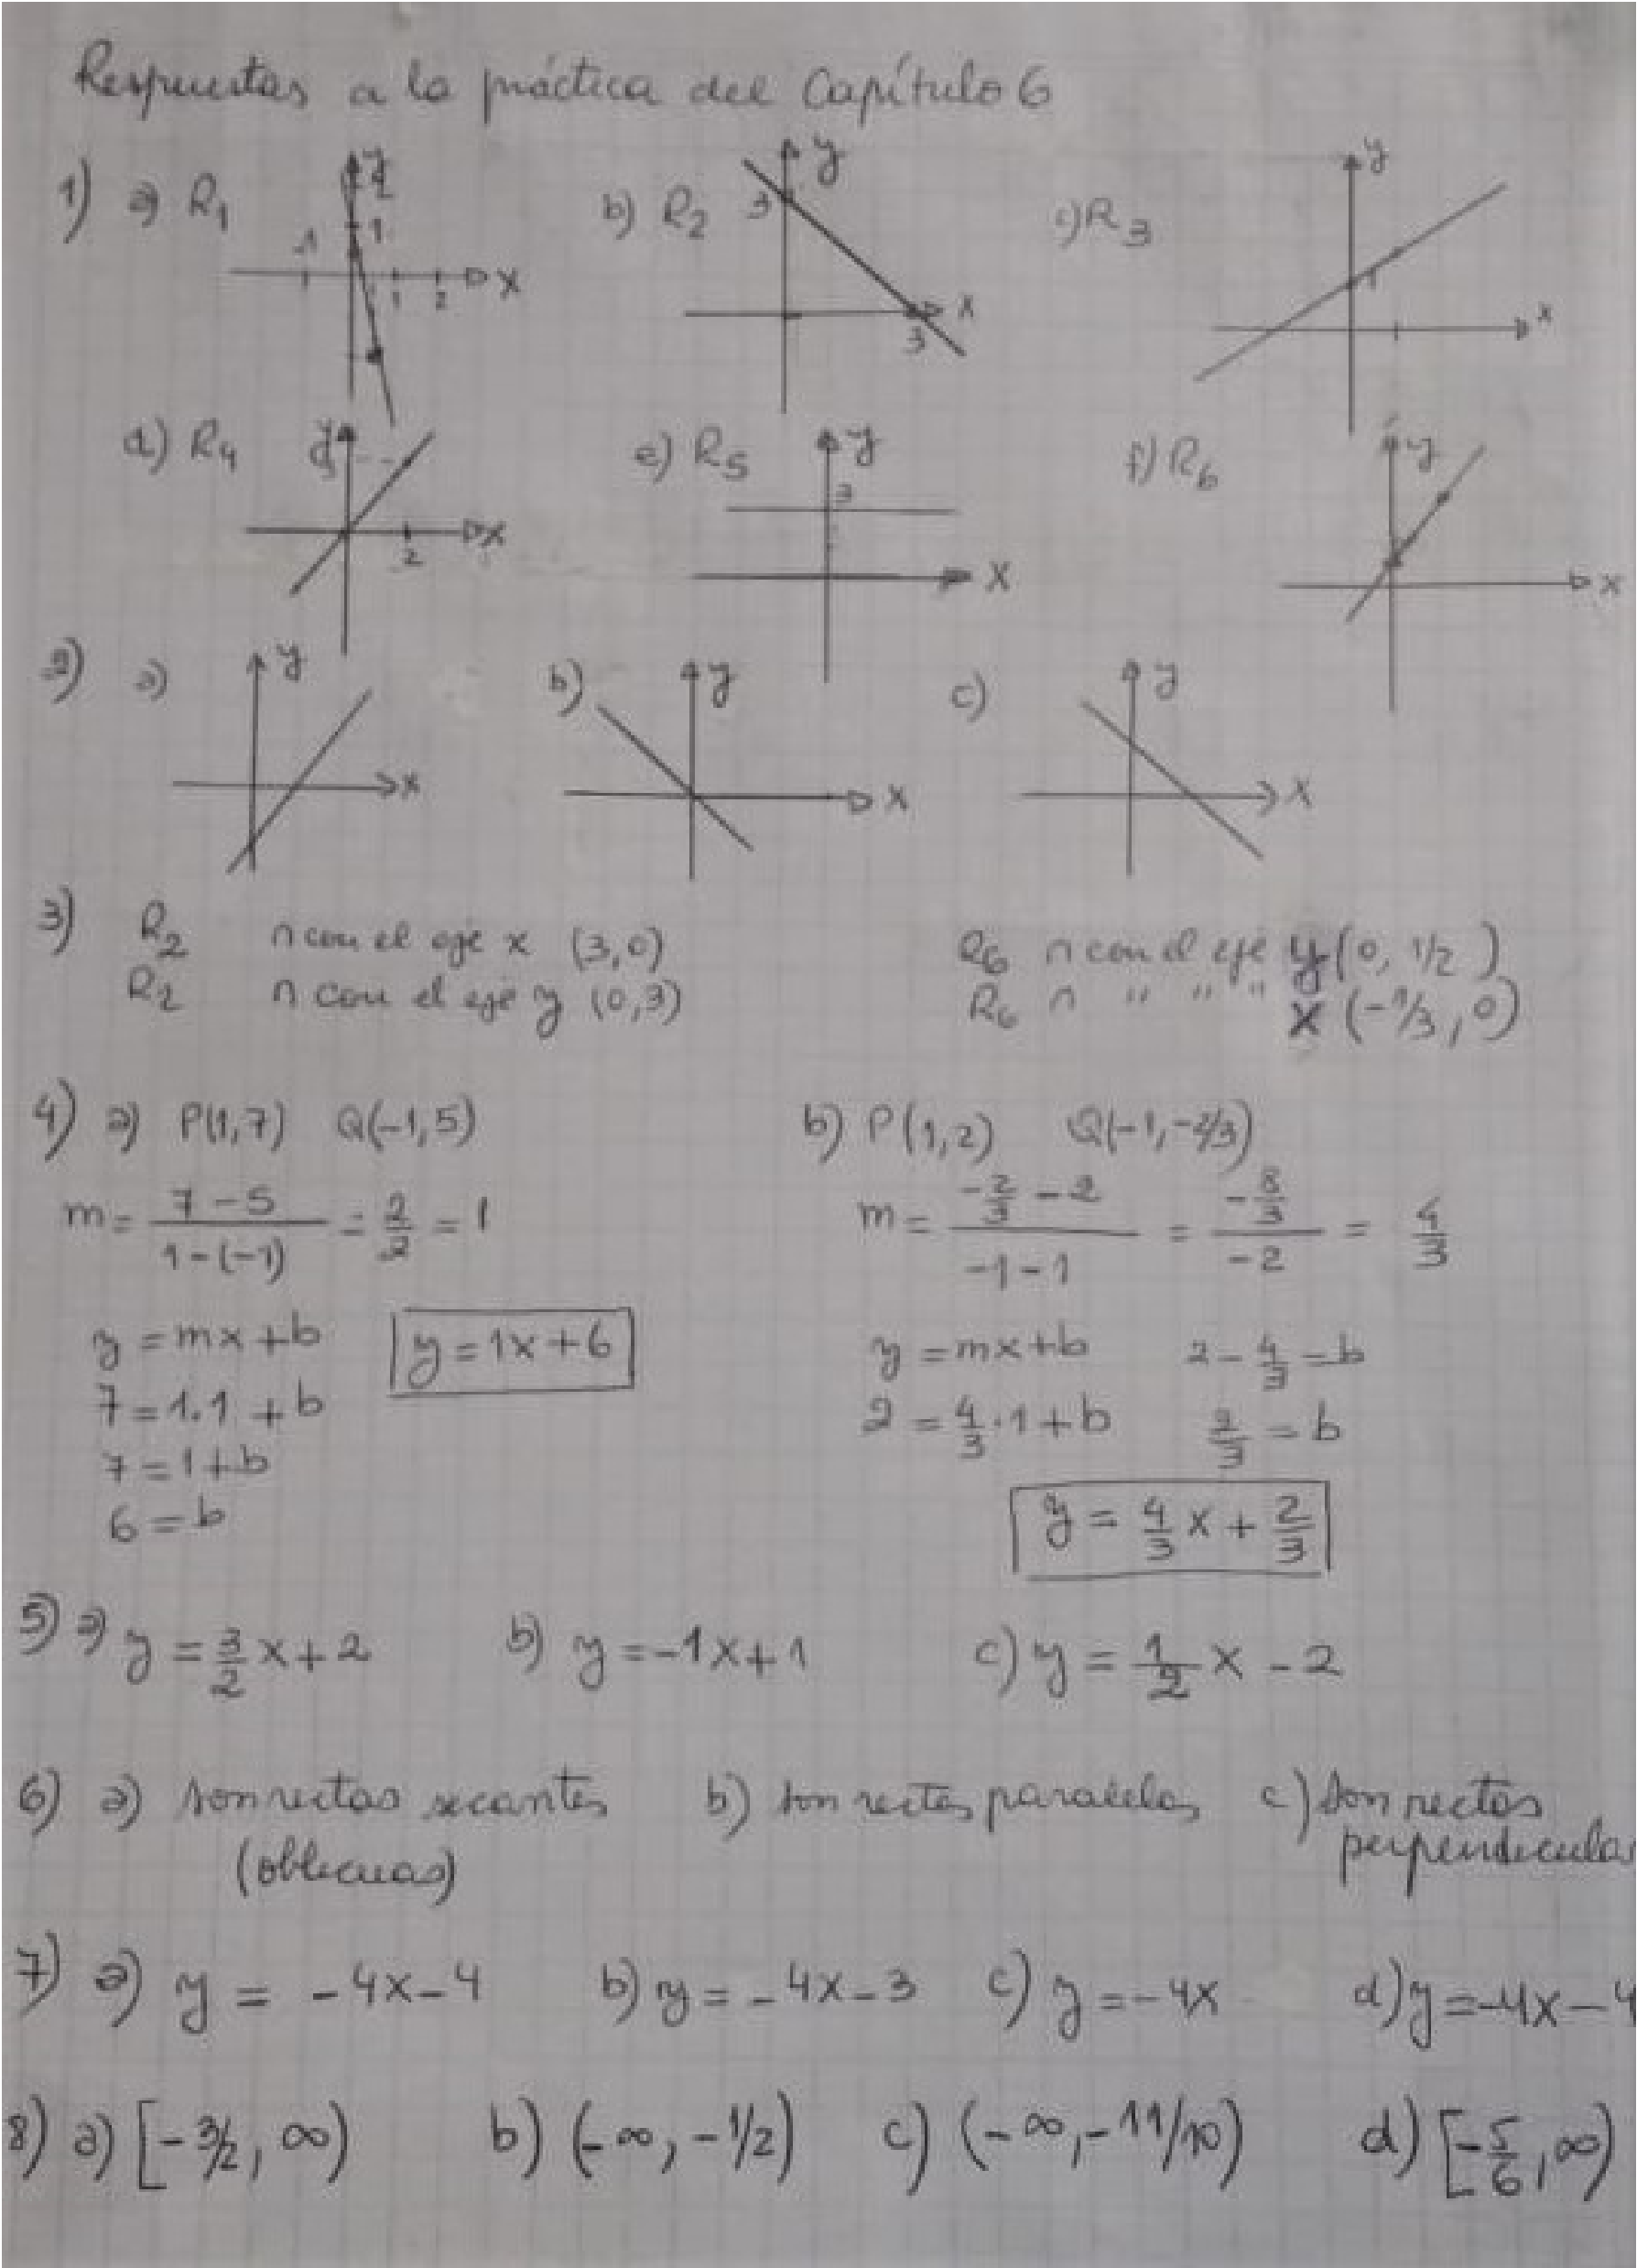 Respuestas a la práctica del Capítulo 6
1) a) R₁ y 1 -1 1 2 x b) R₂ y 3 3 x c) R₃ y 1 x
d) R₄ y 2 x e) R₅ y 3 x f) R₆ y x
2) a) y x b) y x c) y x
3) R₂ ∩ con el eje x (3,0) R₆ ∩ con el eje y (0, 1/2)
R₂ ∩ con el eje y (0,3) R₆ ∩ " " " x (-1/3, 0)
4) a) P(1,7) Q(-1,5) b) P(1,2) Q(-1,-2/3)
m = (7-5)/(1-(-1)) = 2/2 = 1 m = (-2/3 - 2)/(-1-1) = (-8/3)/(-2) = 4/3
y = mx+b y = 1x+6 y = mx+b 2 - 4/3 = b
7 = 1.1 + b 2 = 4/3 . 1 + b 2/3 = b
7 = 1+b
6 = b y = 4/3 x + 2/3
5) a) y = 3/2 x + 2 b) y = -1x+1 c) y = 1/2 x - 2
6) a) son rectas secantes b) son rectas paralelas c) son rectas
(oblicuas) perpendicular
7) a) y = -4x-4 b) y = -4x-3 c) y = -4x d) y = -4x-4
8) a) [-3/2, ∞) b) (-∞, -1/2) c) (-∞, -11/10) d) [-5/6, ∞)